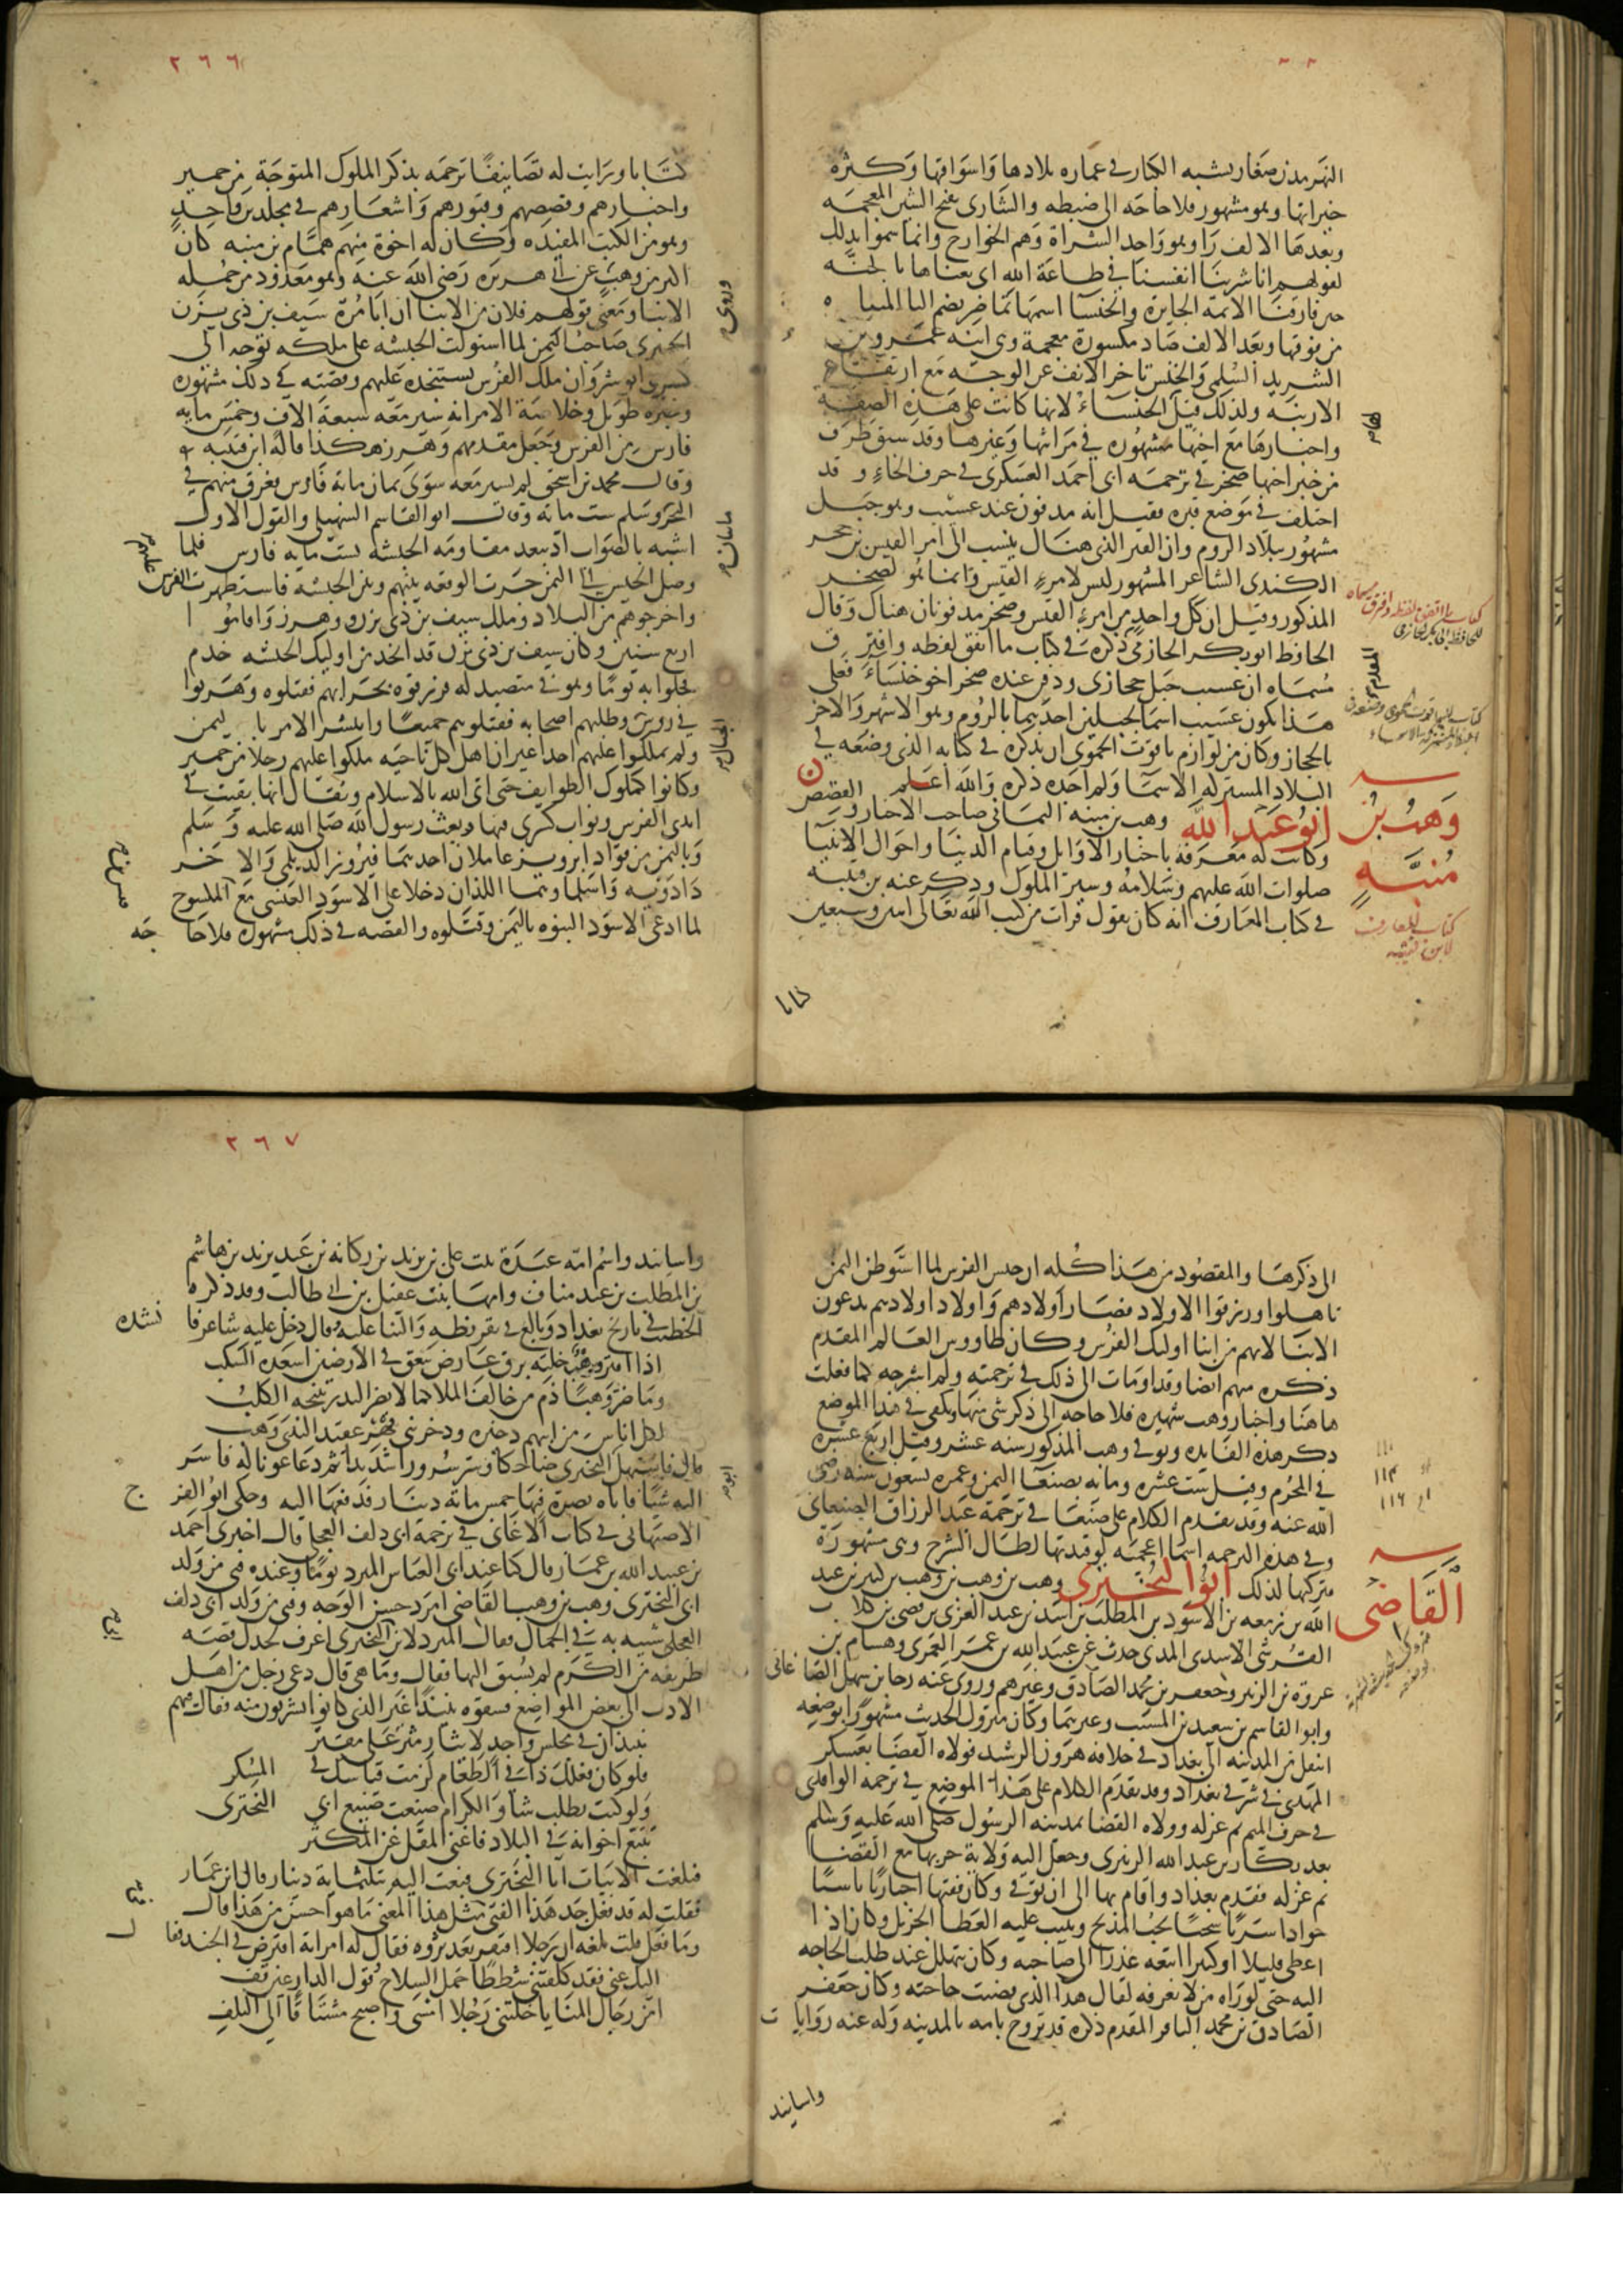 النهر مدن صغار يشبه الكبار في عماره بلادها واسواقها وكثرة
خيراتها وهو مشهور فلا حاجه الى ضبطه والشاري بفتح الشين المعجمه
وبعدها الالف را وهو واحد الشراة وهم الخوارج وانما سموا بذلك
لقولهم انا شرينا انفسنا في طاعة الله اى بعناها بالجنه
حين فارقنا الائمه الجايرة والخنسا اسمها تماضر بضم التا المثناه
من فوقها وبعد الالف ضاد مكسورة معجمة وهي ابنه عمرو بن
الشريد السلمي والخنس تاخر الانف عن الوجه مع ارتفاع
الارنبه ولذلك قيل الخنساء لانها كانت على هذه الصفه
واخبارها مع اخيها مشهوره في مراثيها وغيرها وقد سبق طرف
من خبر اخيها صخر في ترجمه ابى احمد العسكرى في حرف الخاء وقد
اختلف في موضع قبره فقيل انه مدفون عند عسيب وهو جبل
مشهور ببلاد الروم وان القبر الذى هناك ينسب الى امر القيس بن حجر
الكندى الشاعر المشهور ليس لامرء القيس وانما هو لصخر
المذكور وقيل ان كل واحد من امرء القيس وصخر مدفونان هناك وقال
الحافظ ابو بكر الحازمى ذكره في كتاب ما اتفق لفظه وافترق
مسماه ان عسيب جبل حجازى ودفن عنده صخر اخو خنساء فعلى
هذا يكون عسيب اسما لجبلين احديهما بالروم وهو الاشهر والاخر
بالحجاز وكان من لوازم ياقوت الحموى ان يذكره في كتابه الذى وضعه في
البلاد المشتركه الاسما ولم اجده ذكره والله اعلم
وهب بن منبه
ابو عبد الله وهب بن منبه اليمانى صاحب الاخبار والقصص
وكانت له معرفة باخبار الاوايل وقيام الدنيا واحوال الانبيا
صلوات الله عليهم وسلامه وسير الملوك وذكر عنه بن قتيبه
في كتاب المعارف انه كان يقول قرات من كتب الله تعالى اثنين وسبعين
كتاب المعارف
لابن قتيبه
كتابا
٢٦٦
كتابا ورايت له تصانيفا ترجمه بذكر الملوك المتوجة من حمير
واخبارهم وقصصهم وقبورهم واشعارهم في مجلد واحد
وهو من الكتب المفيده وكان له اخوة منهم همام بن منبه كان
اكبر من وهب عن ابى هريره رضى الله عنه وهو معدود من جمله
الابنا ومعنى قولهم فلان من الابنا ان ابا مرة سيف بن ذى يزن
الحميرى صاحب اليمن لما استولت الحبشه على ملكه توجه الى
كسرى انوشروان ملك الفرس يستنجده عليهم وقصته في ذلك مشهوره
وسيره طويل وخلاصة الامر انه سير معه سبعة الاف وخمس مايه
فارس من الفرس وجعل مقدمهم وهرز هكذا قاله ابن قتيبه
وقال محمد بن اسحق لم يسير معه سوى ثمان مائة فارس فغرق منهم في
البحر وسلم ست مائه وقال ابو القاسم السهيلي والقول الاول
اشبه بالصواب اذ يبعد مقاومه الحبشه بست مايه فارس فلما
وصل الجيش الى اليمن جرت الوقعه بينهم وبين الحبشه فاستظهرت الفرس
واخرجوهم من البلاد وملك سيف بن ذى يزن ووهرز واقاموا
اربع سنين وكان سيف بن ذى يزن قد اتخد من اوليك الحبشه خدم
فخلوا به يوما وهو في متصيد له فزرقوه بحرابهم فقتلوه وهربوا
في روس وطلبهم اصحابه فقتلوهم جميعا وانتشر الامر باليمن
ولم يملكوا عليهم احدا غير ان اهل كل ناحيه ملكوا عليهم رجلا من حمير
وكانوا كملوك الطوايف حتى اتى الله بالاسلام ويقال انها بقيت في
ايدى الفرس ونواب كسرى فيها وبعث رسول الله صلى الله عليه وسلم
وباليمن من قواد ابرويز عاملان احديهما فيروز الديلمى والاخر
داذويه واسلما وهما اللذان دخلا على الاسود العنسى مع
لما ادعى الاسود النبوه باليمن وقتلوه والقصه في ذلك مشهوره فلا حاجه
الى ذكرها والمقصود من هذا كله ان جيش الفرس لما استوطن اليمن
تاهلوا ورزقوا الاولاد فصار اولادهم واولاد اولادهم يدعون
الابنا لانهم من ابنا اوليك الفرس وكان طاووس العالم المقدم
ذكره منهم ايضا وقد اومات الى ذلك في ترجمته ولم اشرحه كما فعلت
هاهنا واخبار وهب شهيره فلا حاجه الى ذكر شى منها ويكفى في هذا الموضع
ذكر هذه الفايده وتوفي وهب المذكور سنه عشر وقيل اربع عشره
في المحرم وقيل ست عشره ومائه بصنعا اليمن وعمره تسعون سنه رضى
الله عنه وقد تقدم الكلام على صنعا في ترجمة عبد الرزاق الصنعانى
وفي هذه الترجمه اسما اعجميه لو قيدتها لطال الشرح وهى مشهورة
فتركتها لذلك
القاضى
ابو البخترى وهب بن وهب بن وهب بن كثير بن عبد
الله بن زمعه بن الاسود بن المطلب بن اسد بن عبد العزى بن قصى بن كلاب
القرشى الاسدى المدنى حدث عن عبيد الله بن عمر العمرى وهشام بن
عروة بن الزبير وجعفر بن محمد الصادق وغيرهم وروى عنه رجا بن سهل الصاغانى
وابو القاسم بن سعيد بن المسيب وغيرهما وكان متروك الحديث مشهورا بوضعه
انتقل من المدينه الى بغداد في خلافه هرون الرشيد فولاه القضا بعسكر
المهدى في شرقى بغداد وقد تقدم الكلام على هذا الموضع في ترجمه الواقدى
في حرف الميم ثم عزله وولاه القضا بمدينه الرسول صلى الله عليه وسلم
بعد بكار بن عبد الله الزبيرى وجعل اليه ولاية حربها مع القضا
ثم عزله فقدم بغداد واقام بها الى ان توفي وكان فقيها اخباريا ناسبا
جوادا سريا سخيا يحب المديح ويثيب عليه العطا الجزيل وكان اذا
اعطى قليلا او كثيرا اتبعه عذرا الى صاحبه وكان يتهلل عند طلب الحاجه
اليه حتى لو راه من لا يعرفه لقال هذا الذى قضيت حاجته وكان جعفر
الصادق بن محمد الباقر المقدم ذكره قد تزوج بامه بالمدينه وله عنه روايات
واسانيد
٢٦٧
واسانيد واسم امه عبدة بنت على بن يزيد بن ركانه بن عبد يزيد بن هاشم
بن المطلب بن عبد مناف وامها بنت عقيل بن ابى طالب وقد ذكره
الخطيب في تاريخ بغداد وبالغ في تقريظه والثنا عليه وقال دخل عليه شاعر فانشده
اذا افتر وهب خلته برق عارض تبعق في الارضين اسعده السكب
وما ضر وهبا ذم من خالف الملا كما لا يضر البدر ينبحه الكلب
لكل اناس من ابيهم ذخيره وذخر بنى فهر عقيد الندى وهب
قال فاستهل البخترى ضاحكا وسر سرورا شديدا ثم دعا عونا له فاسر
اليه شيا فاتاه بصرة فيها خمس مائة دينار فدفعها اليه وحكى ابو الفرج
الاصبهانى في كتاب الاغانى في ترجمة ابى دلف العجلى قال اخبرنى احمد
بن عبيد الله بن عمار قال كنا عند ابى العباس المبرد يوما وعنده فتى من ولد
ابى البخترى وهب بن وهب القاضى امرد حسن الوجه وفتى من ولد ابى دلف
العجلى شبيه به في الجمال فقال المبرد لابن ابى البخترى اعرف لجدك قصه
طريفه من الكرم لم يسبق اليها فقال وما هى قال دعى رجل من اهل
الادب الى بعض المواضع فسقوه نبيذا غير الذى كانوا يشربون منه فقال فيهم
نبيذان في مجلس واحد لايثار مثر على مقتر
فلو كان فعلك ذا في الطعام لزمت قياسك في المسكر
ولو كنت تطلب شاو الكرام صنعت صنيع ابى البخترى
تتبع اخوانه في البلاد فاغنى المقل عن المكثر
فبلغت الابيات ابا البخترى فبعث اليه بثلثماية دينار قال ابن عمار
فقلت له قد فعل جد هذا الفتى مثل هذا المعنى ما هو احسن من هذا قال
وما فعل قلت بلغه ان رجلا افتقر بعد ثروه فقال له امراته افترض في الجند فقال
اليك عنى فقد كلفتنى شططا حمل السلاح وقول الدارعين قف
امن رجال المنايا خلتنى رجلا امسى واصبح مشتاقا الى التلف